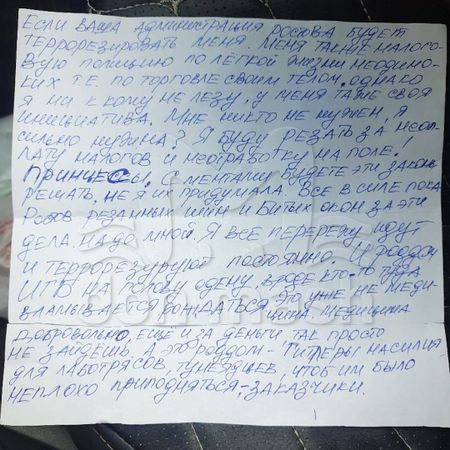 Если ваша администрация Ростова будет
терроре­зировать меня. Меня также налого-
вую полицию по лёгкой жизни неодино-
ких т.е. по торговле своим телом, однако
я ни к кому не лезу, у меня также своя
инициатива. Мне никто не нужен, я
сильно нужна? Я буду резать за неоп-
лату налогов и неотработку на поле!
Принцессы, с ментами будете эти законы
решать, не я их придумала. Все в силе пока
Ростов резанных шин и битых окон за эти
дела. Надо мной. Я все перережу идут
и террорезуруют постоянно. И роддом
ИГВ на голову одену, вроде кто-то туда
вламывается рождаться это уже не меди-
цина. Медицина
добровольно, ещё и за деньги так просто
не зайдешь. А это роддом - Гитлеры насилия
для лаботрясов, тунеядцев, чтоб им было
неплохо приподняться - заказчики.